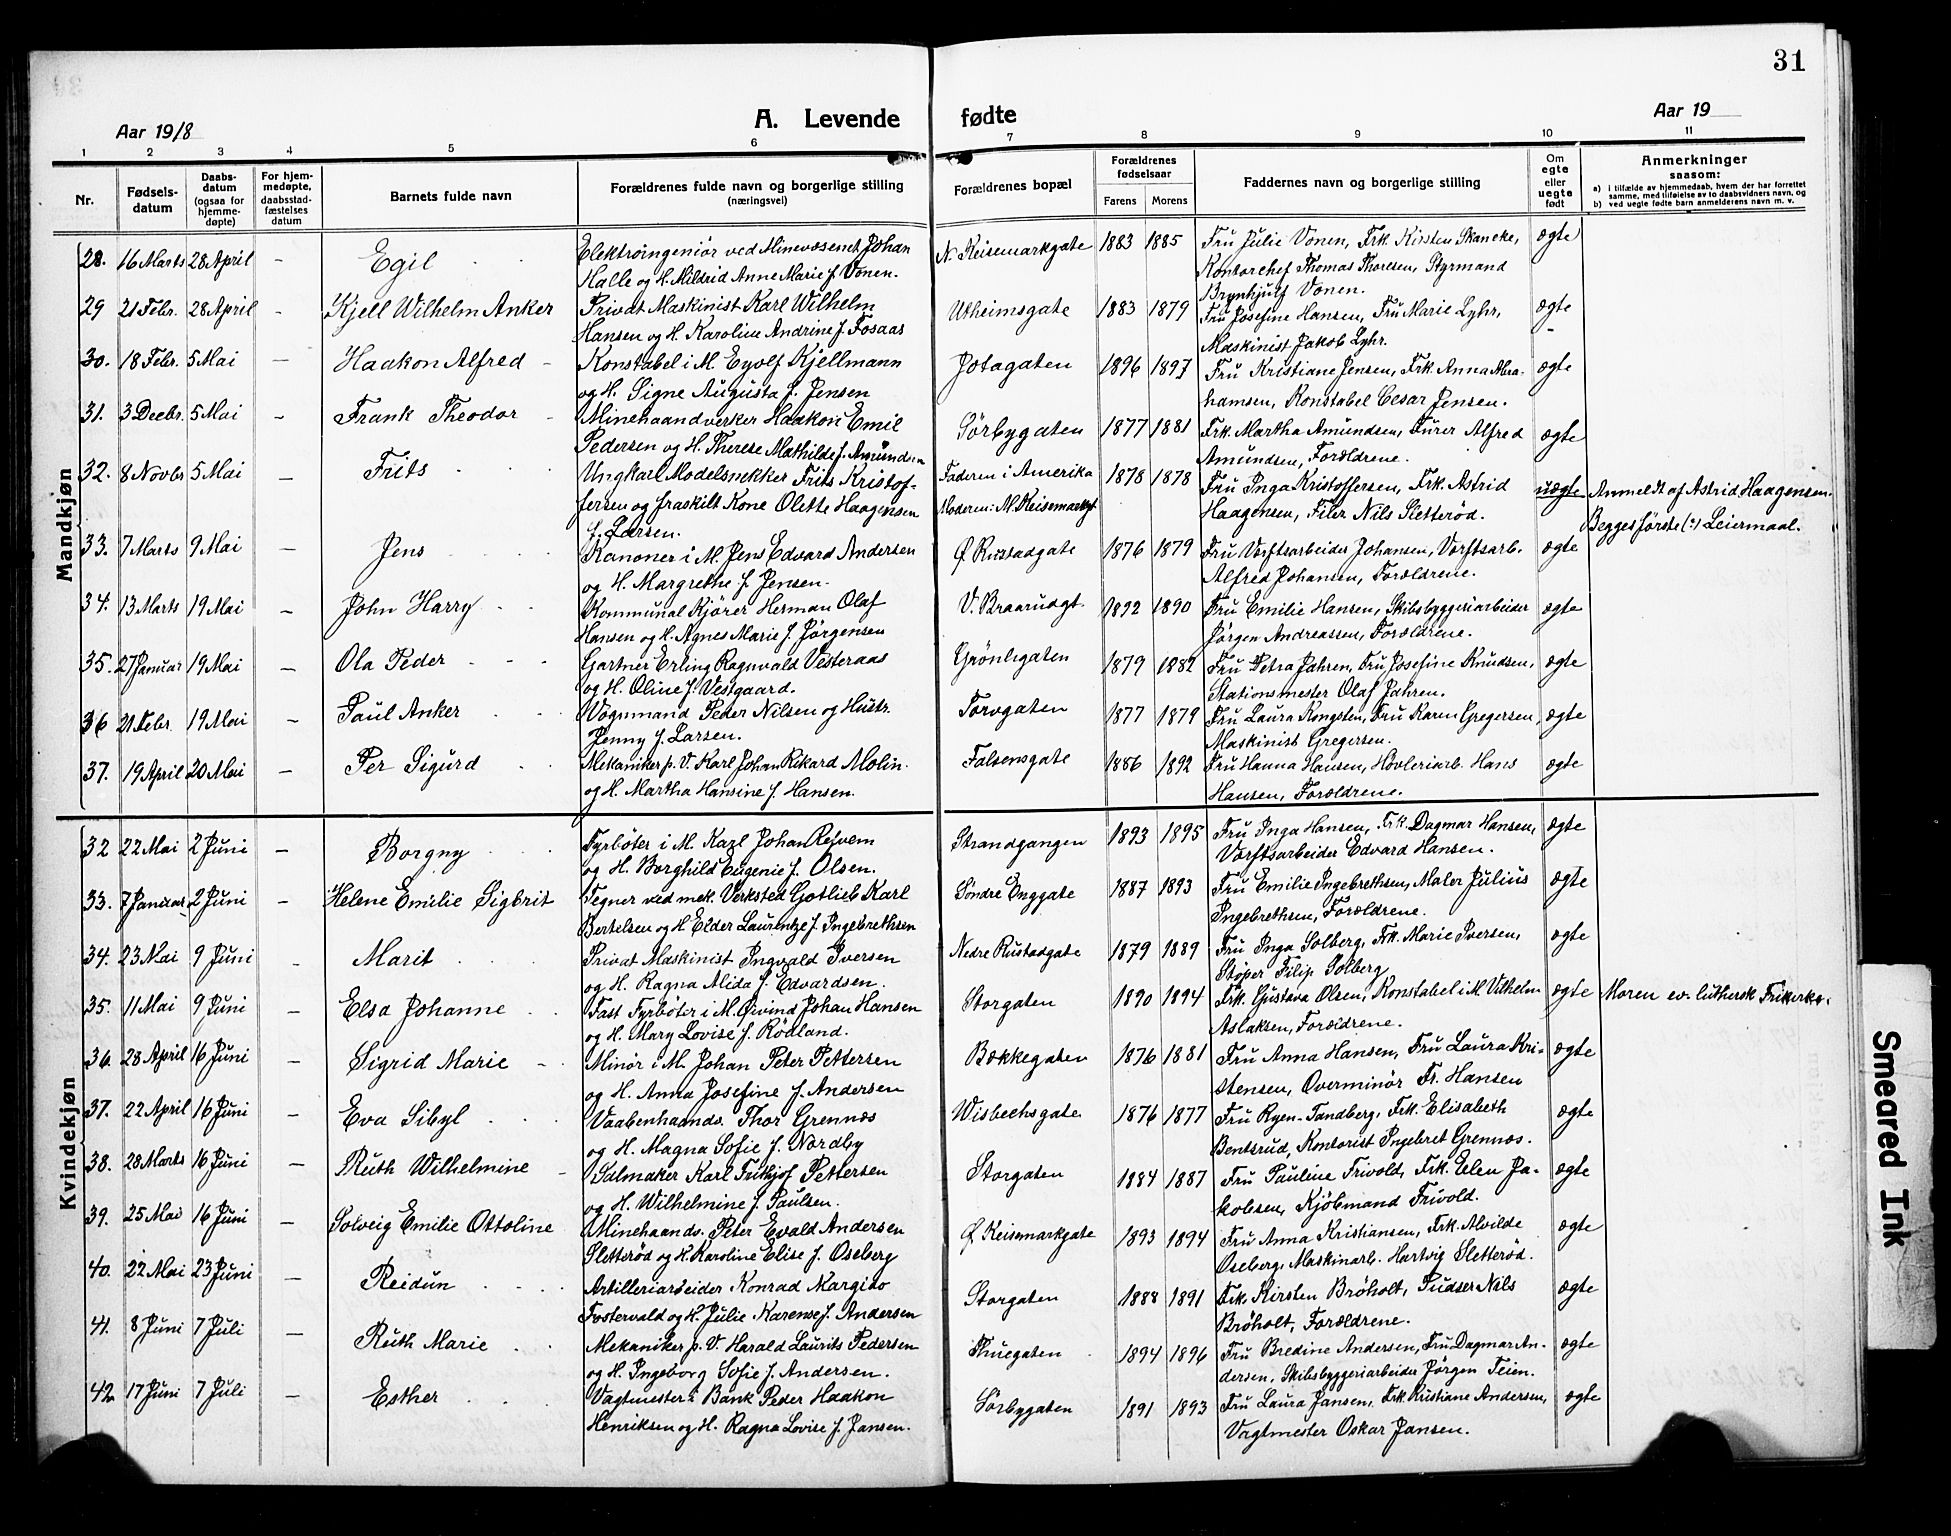 31
Aar 1918
A. Levende fødte
Aar 19
1 2 3 4 5 6 7 8 9 10 11
Nr.
Fødsels-
datum
Daabs-
datum
(ogsaa for
hjemme-
døpte)
For hjem-
medøpte,
daabsstad-
fæstelses
datum
Barnets fulde navn
Forældrenes fulde navn og borgerlige stilling
(næringsvei)
Forældrenes bopæl
Forældrenes
fødselsaar
Farens Morens
Faddernes navn og borgerlige stilling
Om
egte
eller
uegte
født
Anmerkninger
saasom:
a) i tilfælde av hjemmedaab, hvem der har forrettet
samme, med tilføielse av to daabsvidners navn, og
b) ved uegte fødte barn anmelderens navn m. v.
Mandkjøn
28. 16 Marts 28 April — Egil Elektroingeniör ved Minevæsenet Johan N. Keisemarkgate 1883 1885 Fru Julie Vonen, Frk. Kirsten Skancke, ægte
Halle og H. Mildrid Anne Marie f. Vonen. Kontorchef Thomas Thoresen, Styrmand
Brynhjulf Vonen.
29 21 Febr. 28 April — Kjell Wilhelm Anker Privat Maskinist Karl Wilhelm Utheimsgate 1883 1879 Fru Josefine Hansen, Fru Marie Lyhr, ægte
Hansen og H. Karoline Andrine f. Fosaas Maskinist Jakob Lyhr.
30. 18 Febr. 5 Mai — Haakon Alfred Konstabel i M. Eyolf Kjellmann Jotagaten 1896 1897 Fru Kristiane Jensen, Frk. Anna Abra- ægte
og H. Signe Augusta f. Jensen hamsen, Konstabel Cesar Jensen.
31. 3 Decbr. 5 Mai — Frank Theodor Minehaandverker Haakon Emil Sörbygaten 1877 1881 Frk. Martha Amundsen, Furer Alfred ægte
Pedersen og H. Therese Mathilde f. Amundsen Amundsen, Forældrene.
32. 8 Novbr 5 Mai — Frits Ungkarl Modelsnekker Frits Kristof- Faderen i Amerika 1878 1878 Fru Inga Kristoffersen, Frk. Astrid uægte Anmeldt af Astrid Haagensen.
fersen og fraskilt Kone Olette Haagensen Moderen: M. Keisemarkgt. Haagensen, Filer Nils Sletterød. Begges förste (?) Leiermaal.
f. Larsen.
33. 7 Marts 9 Mai — Jens Kanoner i M. Jens Edvard Andersen Ø Rustadgate 1876 1879 Fru Værftsarbeider Johansen, Værftsarb. ægte
og H. Margrethe f. Jensen. Alfred Johansen, Forældrene.
34. 13 Marts 19 Mai — John Harry Kommunal Kjörer Herman Olaf V. Braarudgt. 1892 1890 Fru Emilie Hansen, Skibsbyggeriarbeider ægte
Hansen og H. Agnes Marie f. Jörgensen Jörgen Andreassen, Forældrene.
35. 27 Januar 19 Mai — Ola Peder Gartner Erling Ragnvald Vesteraas Grönligaten 1879 1882 Fru Petra Jahren, Fru Josefine Knudsen, ægte
og H. Oline f. Vestgaard. Stationsmester Olaf Jahren.
36 21 Febr. 19 Mai — Paul Anker Vognmand Peder Nilsen og Hustr. Torvgaten 1877 1879 Fru Laura Kongsten, Fru Karen Gregersen, ægte
Jenny f. Larsen. Maskinist Gregersen.
37. 19 April 20 Mai — Per Sigurd Mekaniker p. V. Karl Johan Rikard Molin Falsensgate 1886 1892 Fru Hanna Hansen, Hövleriarb. Hans ægte
og H. Martha Hansine f. Hansen. Hansen, Forældrene.
Kvindekjøn
32 22 Mai 2 Juni — Borgny Fyrböter i M. Karl Johan Refvem Strandgangen 1893 1895 Fru Inga Hansen, Frk. Dagmar Hansen, ægte
og H. Borghild Eugenie f. Olsen. Værftsarbeider Edvard Hansen.
33. 7 Januar 2 Juni — Helene Emilie Sigbrit Tegner ved mek. Verksted Gotlieb Karl Söndre Enggate 1887 1893 Fru Emilie Ingebrethsen, Maler Julius ægte
Bertelsen og H. Elder Laurentze f. Ingebrethsen Ingebrethsen, Forældrene.
34. 23 Mai 9 Juni — Marit Privat Maskinist Ingvald Iversen Nedre Rustadgate 1879 1889 Fru Inga Solberg, Frk. Marie Iversen, ægte
og H. Ragna Alida f. Edvardsen. Stöper Filip Solberg
35. 11 Mai 9 Juni — Elsa Johanne Fast Fyrböter i M. Øivind Johan Hansen Storgaten 1890 1894 Frk. Gustava Olsen, Konstabel i M Vilhelm ægte Moren ev. luthersk Frikirke.
og H. Mary Lovise f. Rödland. Aslaksen, Forældrene.
36. 28 April 16 Juni — Sigrid Marie Minör i M. Johan Peter Pettersen Bækkegaten 1876 1881 Fru Anna Hansen, Fru Laura Kri- ægte
og H. Anna Josefine f. Andersen stensen, Overminör Fr. Hansen
37. 22 April 16 Juni — Eva Sibyl Vaabenhaandv. Thor Grennæs Wisbechsgate 1876 1877 Fru Ryen-Tandberg, Frk. Elisabeth ægte
og H. Magna Sofie f. Nordby Bentsrud, Kontorist Ingebret Grennæs.
38. 28 Marts 16 Juni — Ruth Wilhelmine Salmaker Karl Frithjof Pettersen Storgaten 1884 1887 Fru Pauline Frivold, Frk. Ellen Ja- ægte
og H. Wilhelmine f. Paulsen. kobsen, Kjöbmand Frivold.
39. 25 Mai 16 Juni — Solveig Emilie Ottoline Minehaandv. Peter Evald Andersen Ø Keisemarkgate 1893 1894 Fru Anna Kristiansen, Frk. Alvilde ægte
Sletteröd og H. Karoline Elise f. Oseberg Oseberg, Maskinarb. Hartvig Sletteröd.
40. 22 Mai 23 Juni — Reidun Artilleriarbeider Konrad Margido Storgaten 1888 1891 Frk. Kirsten Bröholt, Pudser Nils ægte
Fostervald og H. Julie Karense f. Andersen Bröholt, Forældrene.
41. 8 Juni 7 Juli — Ruth Marie Mekaniker p. V. Harald Laurits Pedersen Thuegaten 1894 1896 Fru Bredine Andersen, Fru Dagmar An- ægte
og H. Ingeborg Sofie f. Andersen. dersen, Skibsbyggeriarbeider Jörgen Teien.
42 17 Juni 7 Juli — Esther Vagtmester i Bank Peder Haakon Sörbygaten 1891 1893 Fru Laura Jansen, Frk Kristiane Andersen, ægte
Henriksen og H. Ragna Lovise f. Jansen. Vagtmester Oskar Jansen.
Smeared Ink